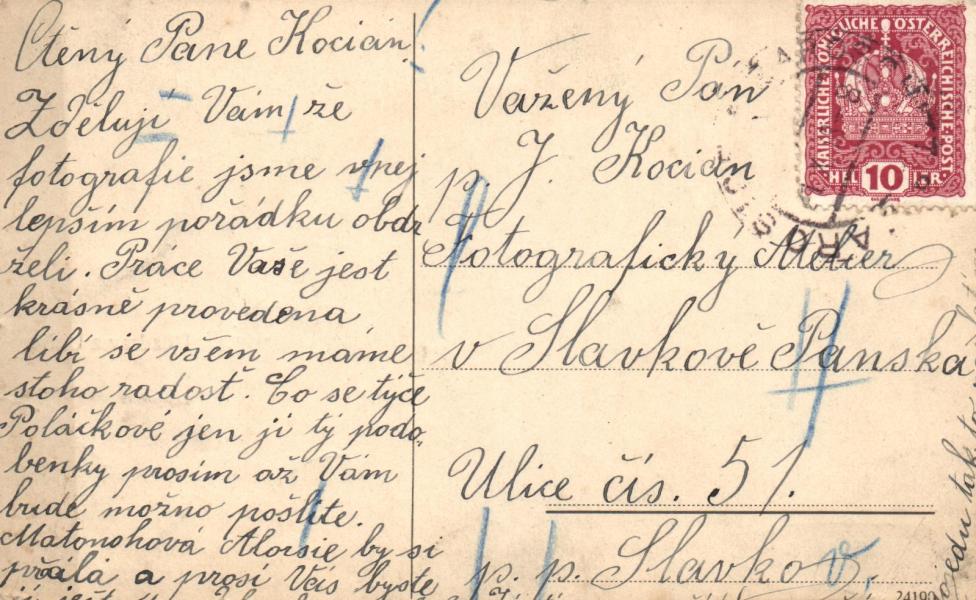 Ctěný Pane Kocián!
Zděluji Vám že
fotografie jsme vnej
lepším pořádku obdr
želi. Práce Vaše jest
krásně provedena
líbí se všem máme
stoho radost. Co se týče
Poláčkové jen jí ty podo-
benky prosím až Vám
bude možno pošlite.
Matonohová Aloisie by si
přála a prosí Vás byste
Vážený Pán
p. J. Kocián
Fotografický Atelier
v Slavkově Panská
Ulice čís. 51.
p. p. Slavkov.
KAISERLICHE KÖNIGLICHE ÖSTERREICHISCHE POST
HEL 10 LER
24190